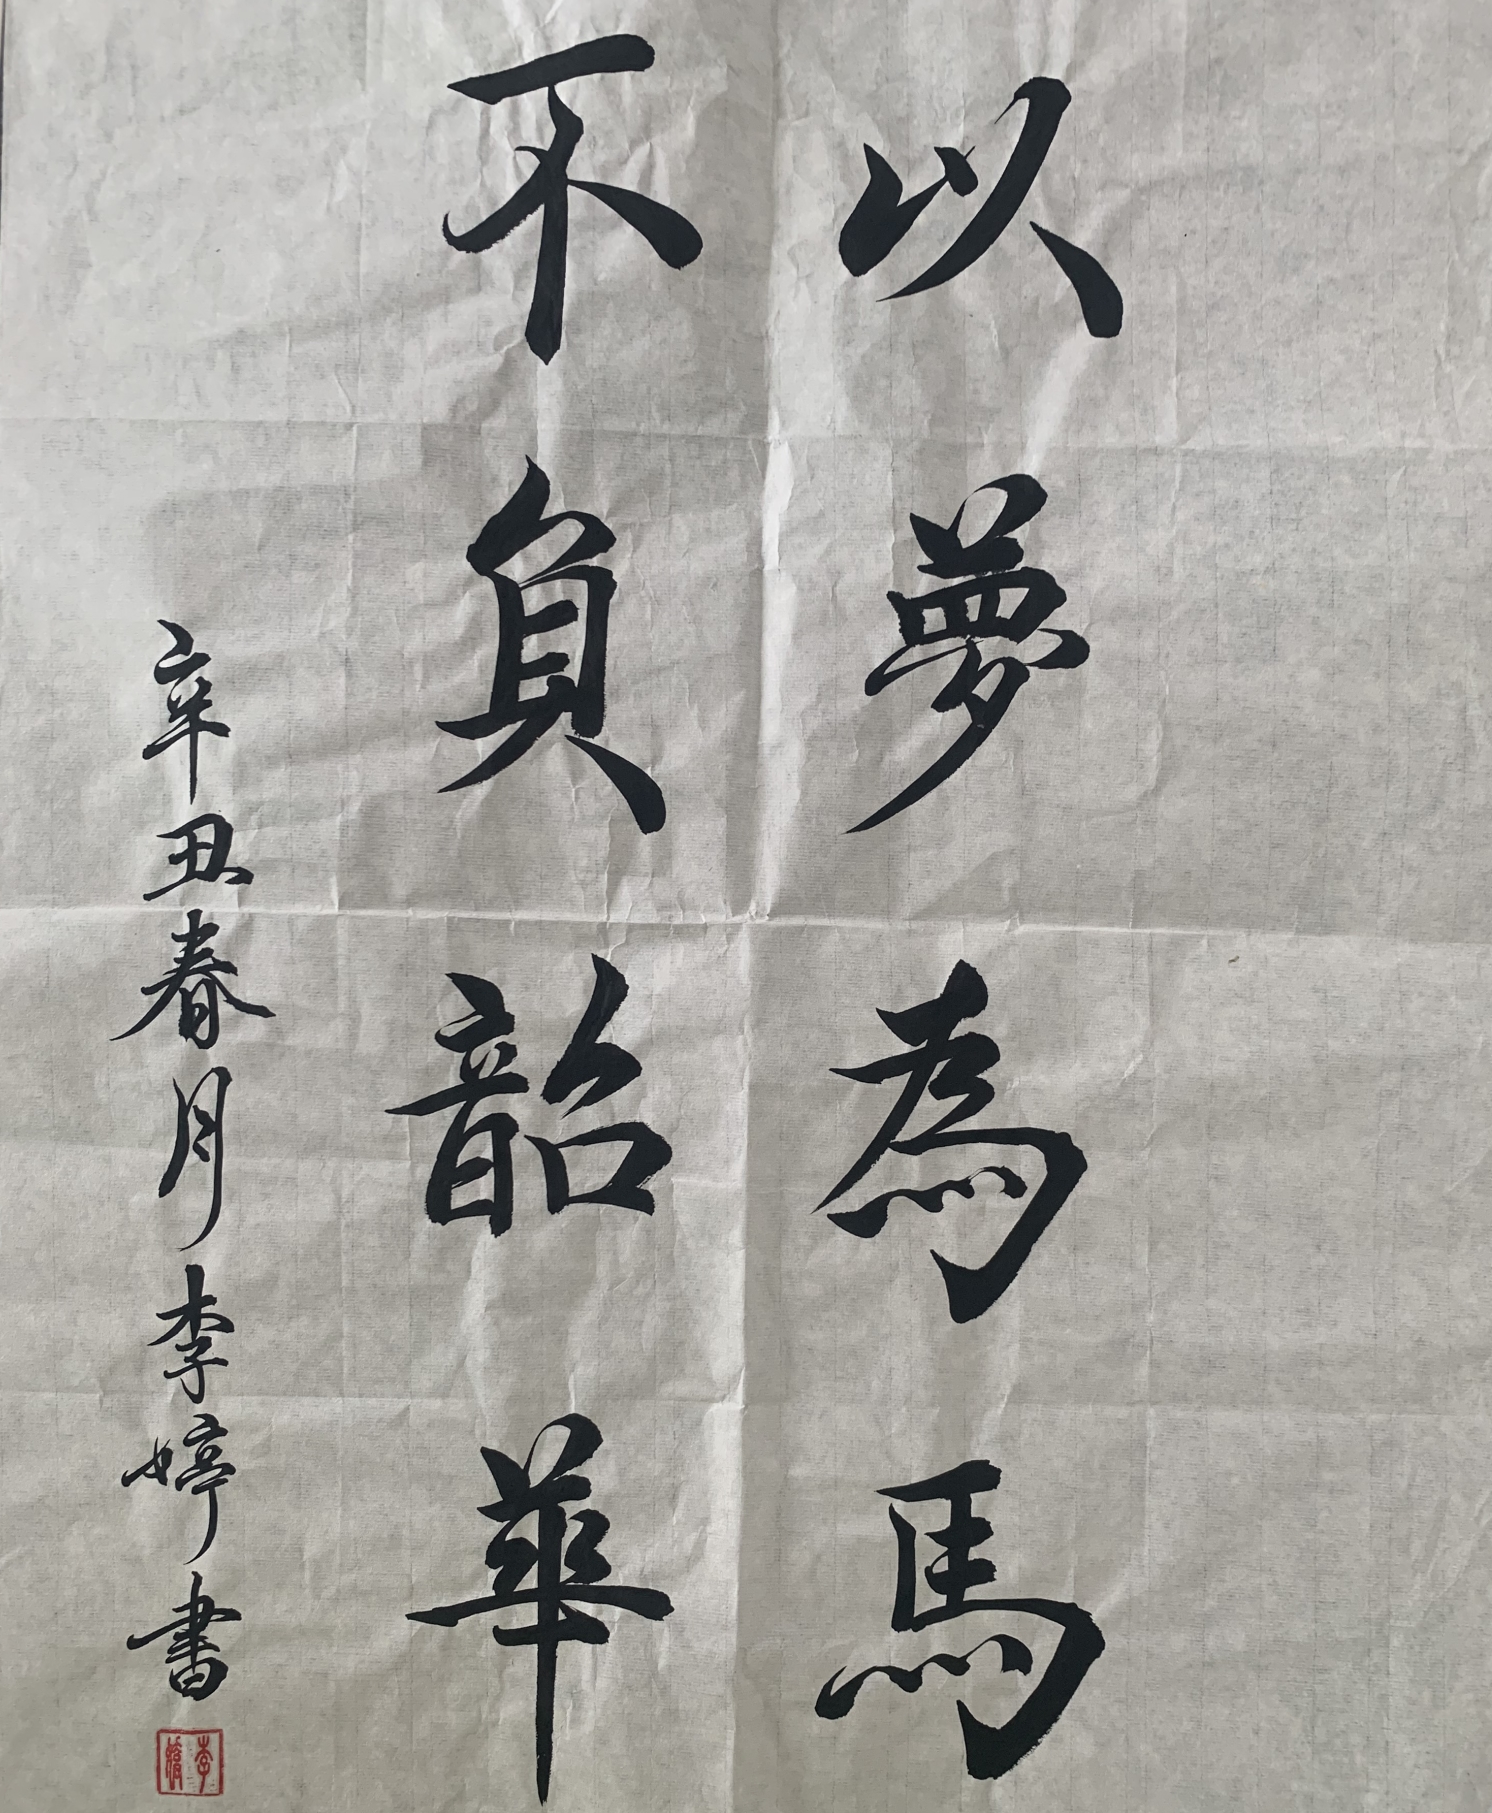 以夢為馬
不負韶華
辛丑春月李婷書
李婷